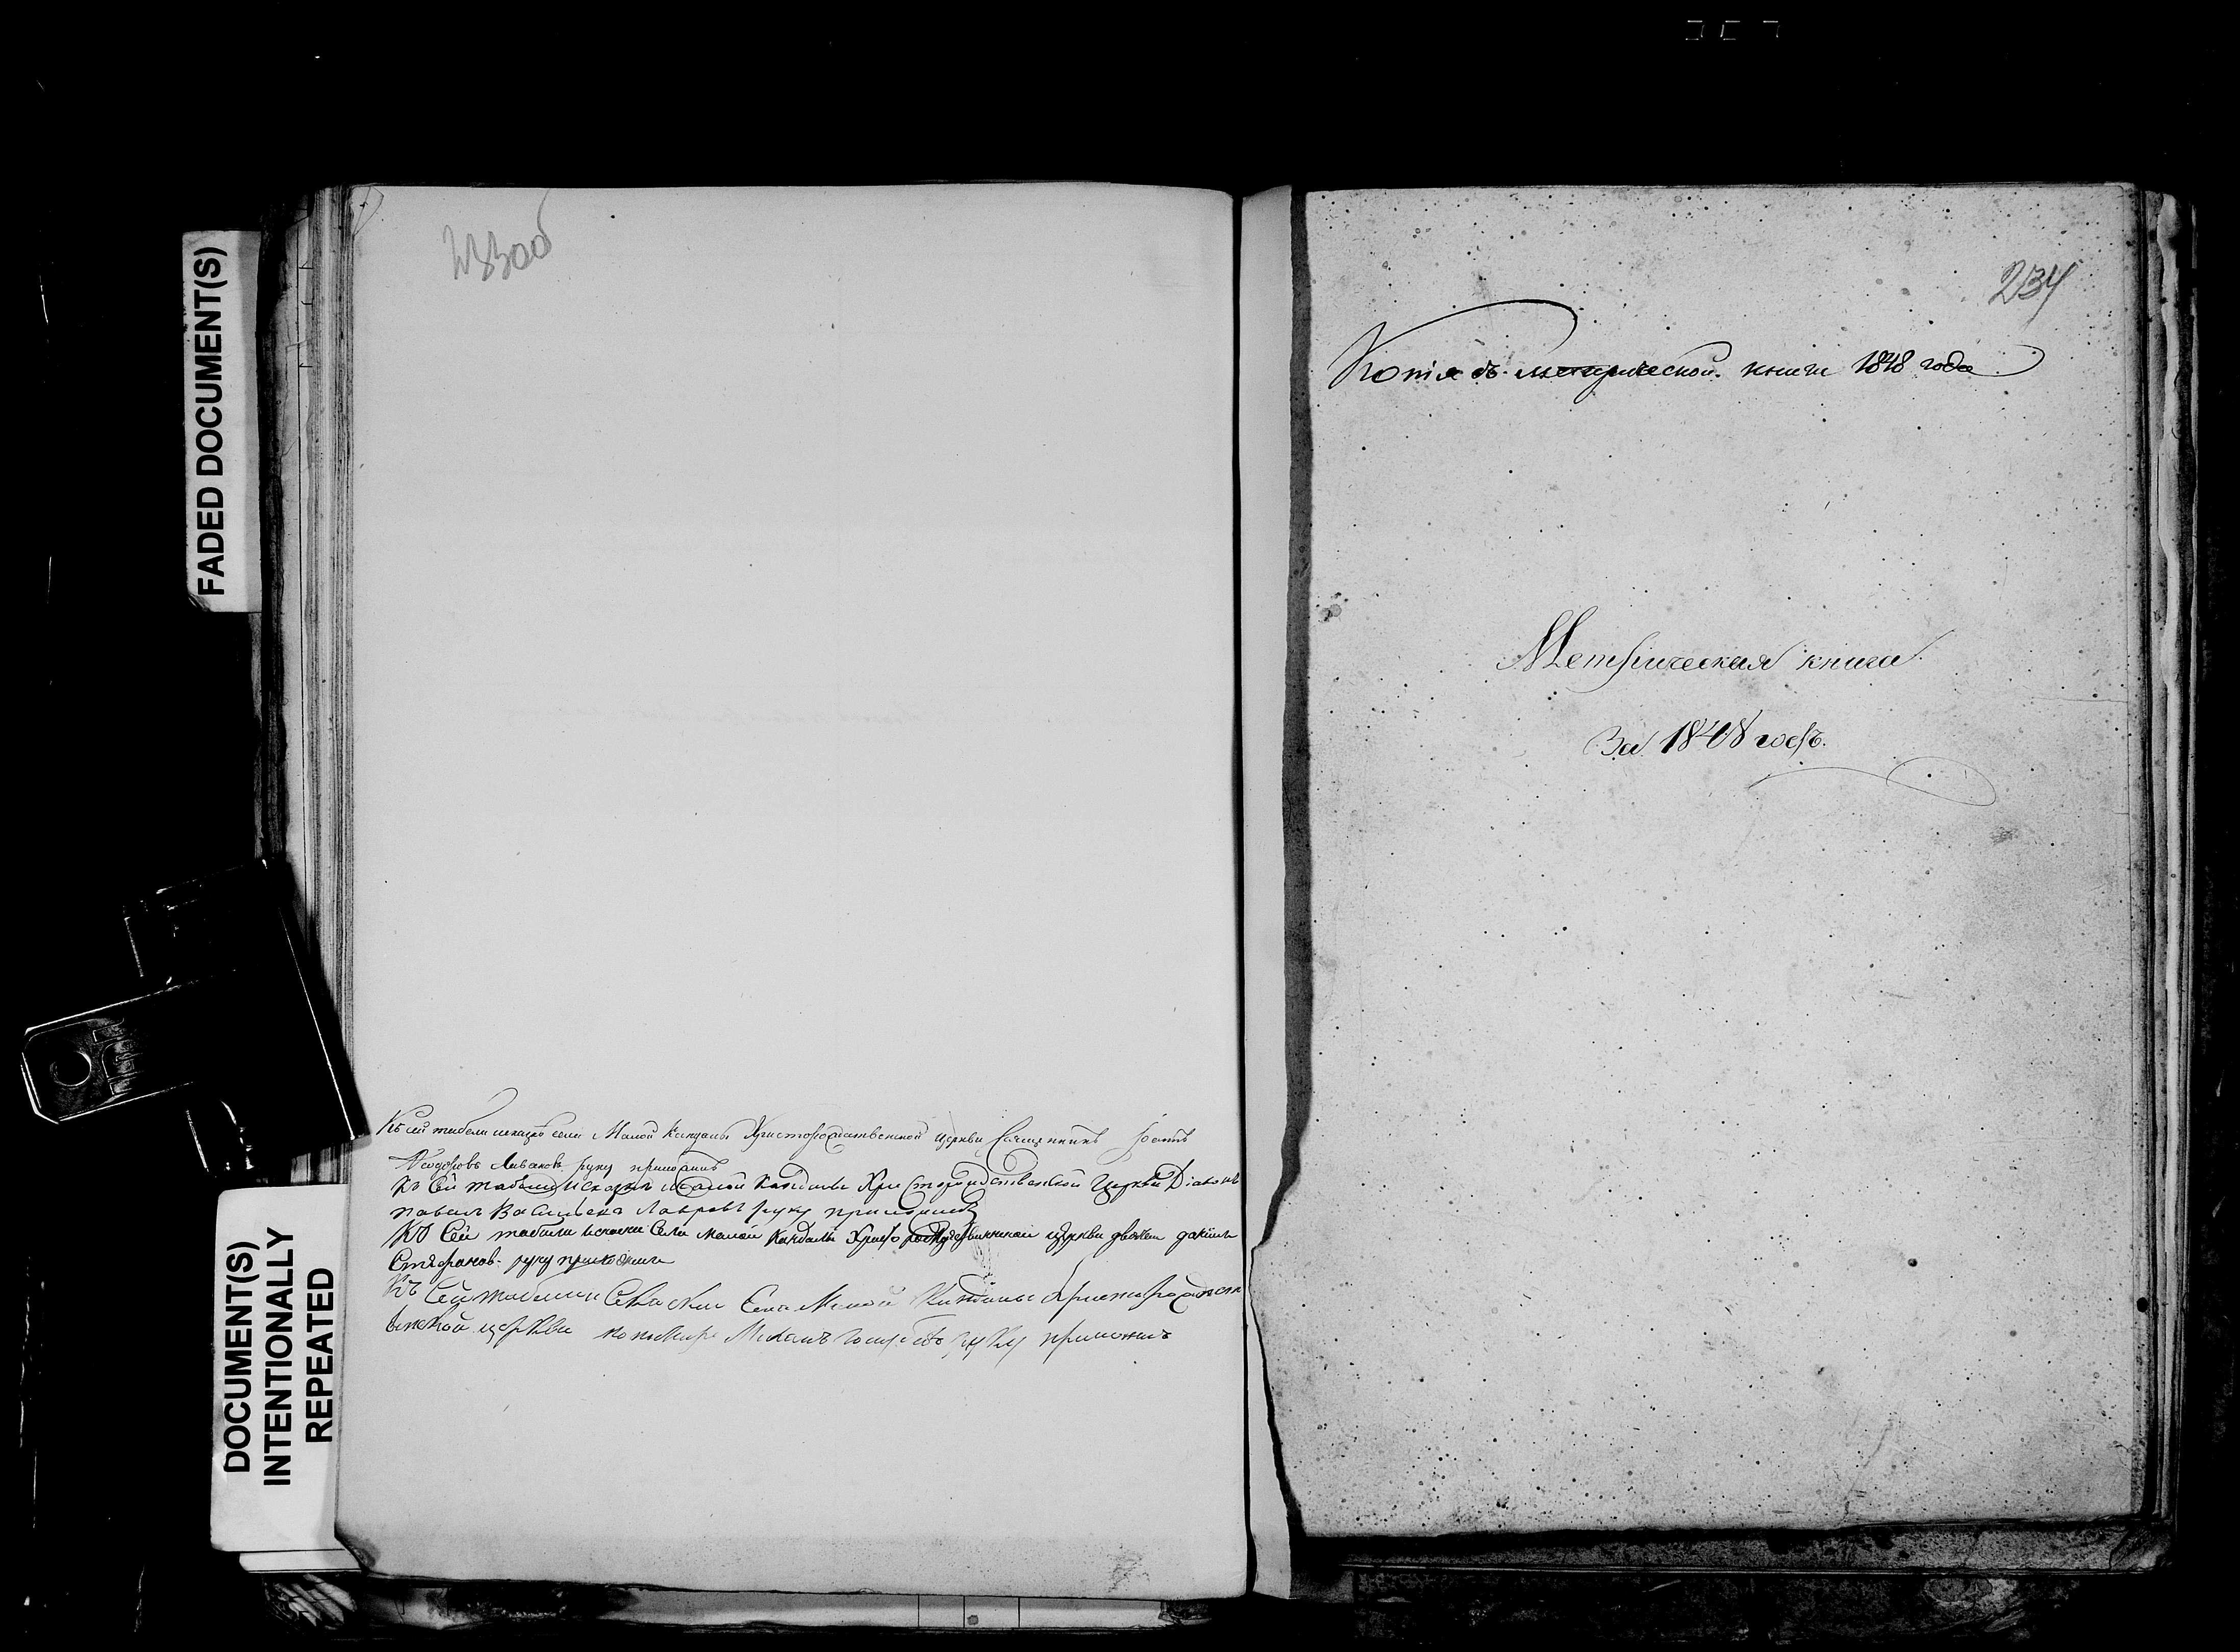 FADED DOCUMENT(S)
DOCUMENT(S)
INTENTIONALLY
REPEATED
233об
Къ сей табели исказкѣ села Малой Кандалы Христорождественской церкви Священникъ Іоаннъ
Ѳеодоровъ Ливановъ руку приложилъ
Къ Сей табели малой Кандалы Христорождественской Церкви Діаконъ
павелъ Васильевъ Лавровъ руку приложилъ
Къ Сей табели Села малой Кандалы церкви дьячекъ
Стефановъ руку приложилъ
Къ Сей табели Села Малой Кандалы Христорождест
венской церкви пономарь руку приложилъ
234
Копія съ метрической книги 1848 года
Метрическая книга
За 1848 годъ.